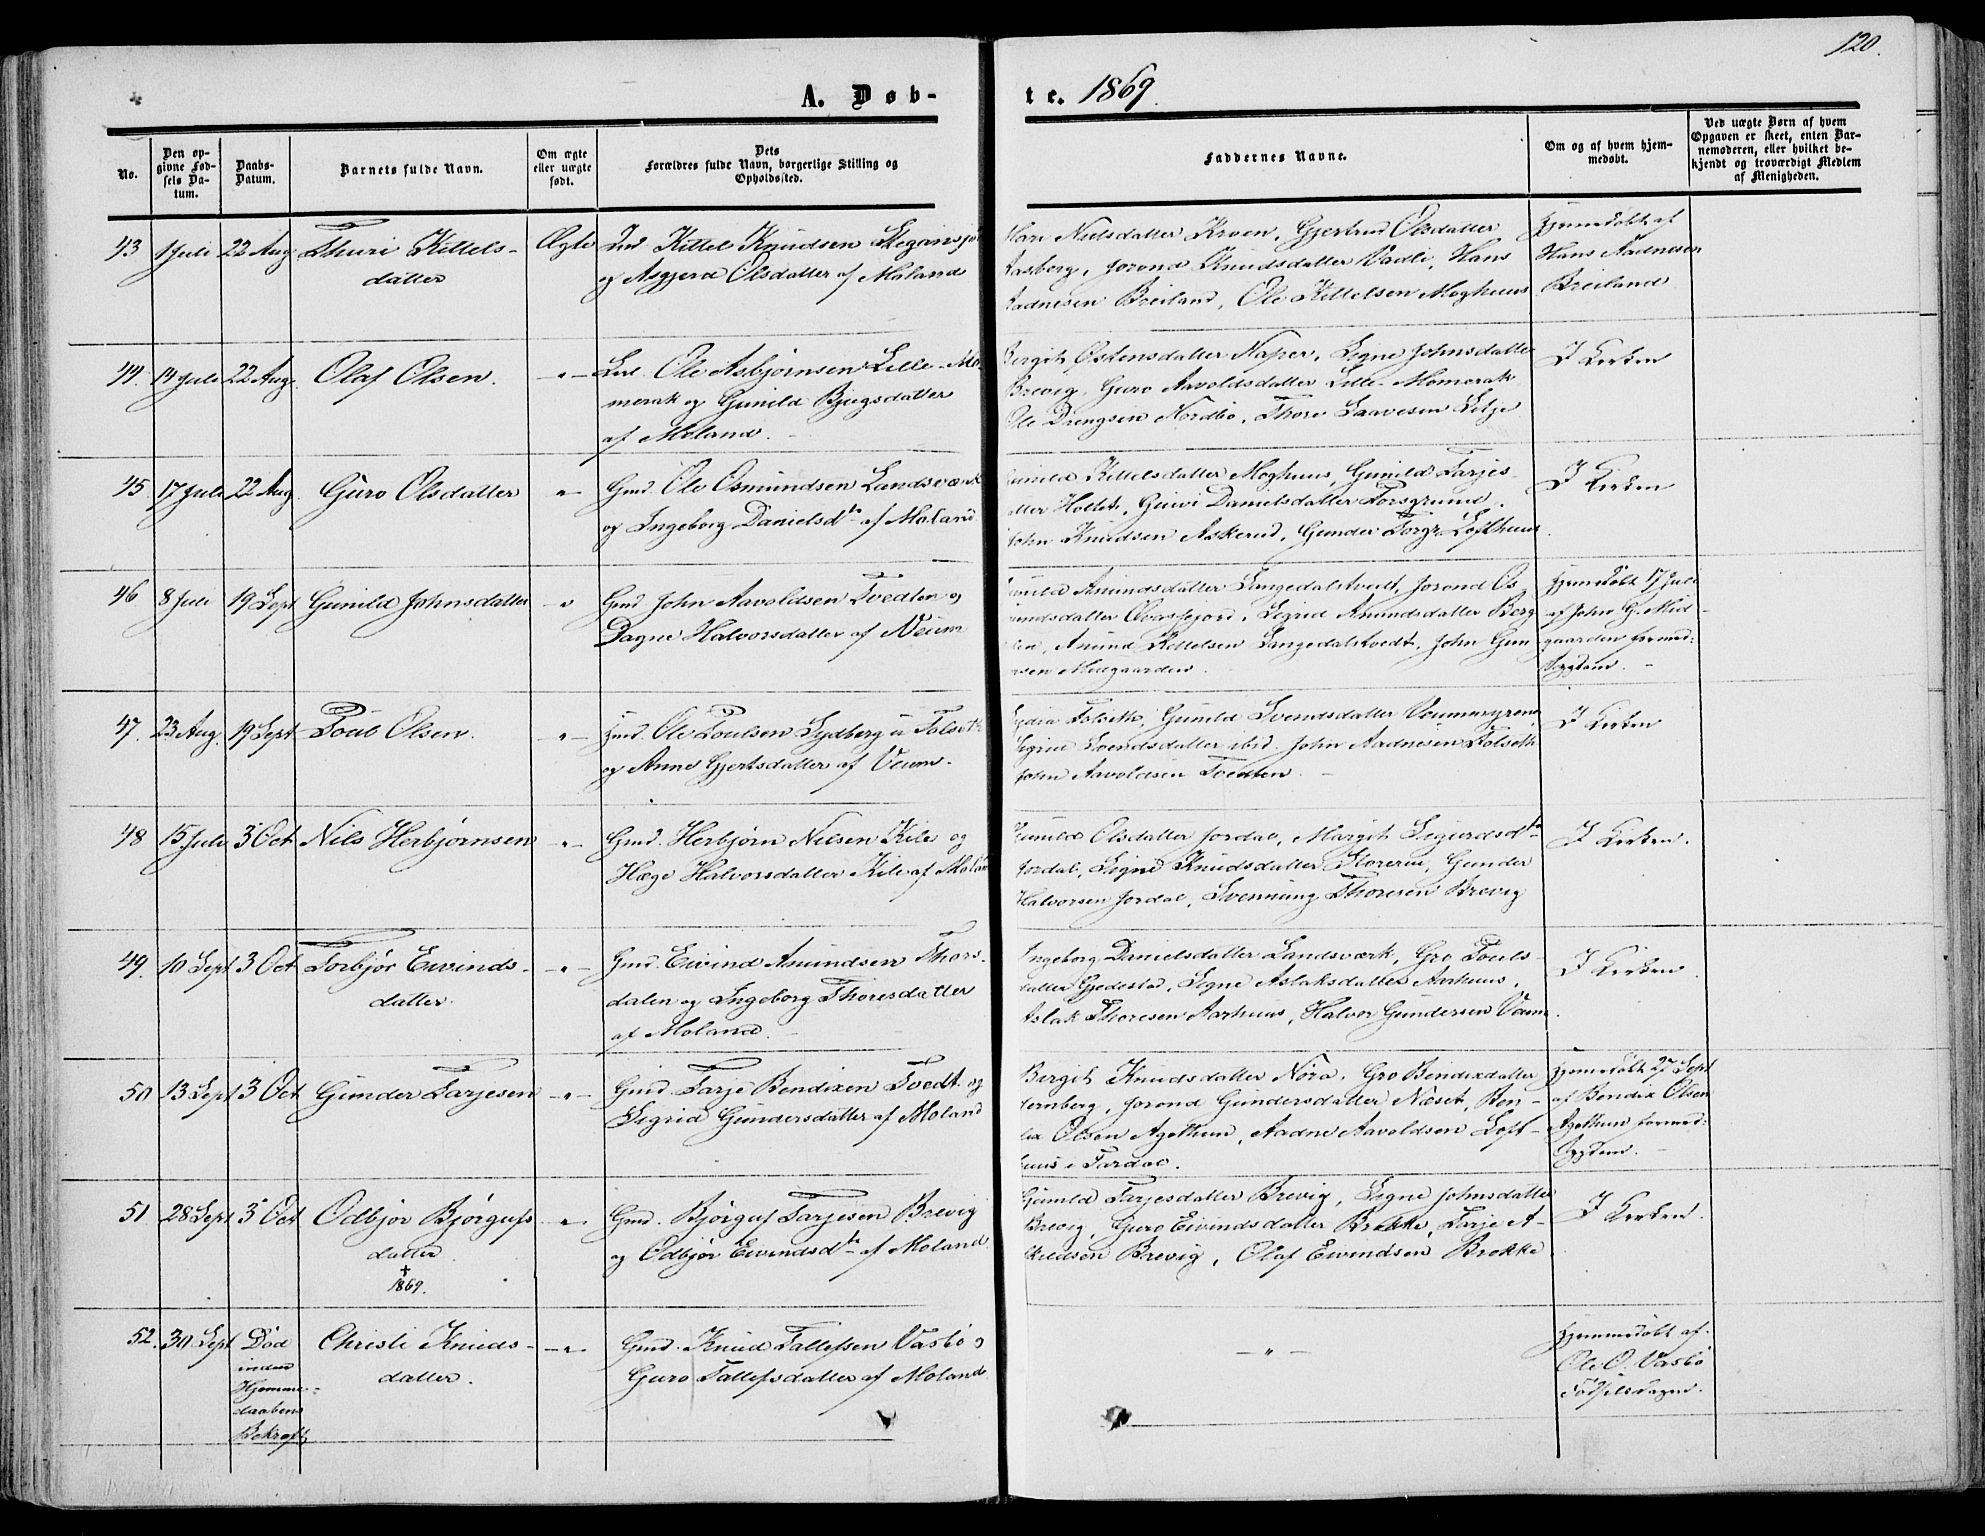 120.
A. Døb-
te. 1869.
No.
Den op-
givne Fød-
sels Da-
tum.
Daabs-
Datum.
Barnets fulde Navn.
Om ægte
eller uægte
født.
Dets
Forældres fulde Navn, borgerlige Stilling og
Opholdssted.
Faddernes Navne.
Om og af hvem hjem-
medøbt.
Ved uægte Børn af hvem
Opgaven er skeet, enten Bar-
nemoderen, eller hvilket be-
kjendt og troværdigt Medlem
af Menigheden.
43 1 Juli 22 Aug Thuri Kittels-
datter
Ægte
Ind. Kittel Knudsen
og Asgjerd Olsdatter af Moland
Nielsdatter Kroen, Gjertrud Olsdatter
Aasberg, Jorond Knudsdatter Vadli, Hans
Aadnesen Breiland, Ole Kittelsen Moghuus
Hjemmedøbt af
Hans Aadnesen
Breiland
44. 14 Juli 22 Aug. Olaf Olsen. -"-
Ole Asbjørnsen Lille-Mo-
merak og Gunild Bjugsdatter
af Moland.
Bergit Østensdatter Naper, Signe Johnsdatter
Brevig, Guro Aavoldsdatter Lille-Momerak
Ole Drengsen Nordbø, Thore Saavesen Lilje
I Kirken
45 17 Juli 22 Aug. Guro Olsdatter "
Gmd. Ole Osmundsen Landsværk
og Ingeborg Danielsdtr af Moland
Gunild Kittelsdatter Moghuus, Gunild Tarjes-
datter Holte, Guivi Danielsdatter Forsgrund,
John Knudsen Askerud, Gunder Torgr. Lofthuus.
I Kirken
46 8 Juli 19 Sept Gunild Johnsdatter -"
Gmd John Aavoldsen Tvedten og
Dagne Halvorsdatter af Veum
Gunild Amundsdatter Langedalstvedt, Jorond Os-
mundsdatter Ovasfjord, Sigrid Anundsdatter Berg
Anund Kittelsen Langedalstvedt, John Gun
Midgaarden.
Hjemmedøbt 17 Juli
af John G. Mid-
gaarden formed:
Sygdom. -
47. 23 Aug. 19 Sept Poul Olsen. -"-
Ole Poulsen Lydberg u Folseth
og Anne Gjertsdatter af Veum.
Lydia Folseth, Gunild Svendsdatter Veummyrene
Sigrid Svendsdatter ibid. John Aadnesen Folseth
John Aavoldsen Tvedten. -
I Kirken
48 15 Juli 3 Oct Nils Herbjørnsen -"-
Gmd. Herbjørn Nilsen Kile og
Hæge Halvorsdatter Kile af Moland
Gunild Olsdatter Jordal, Margit Sigurdsdtr
Jordal, Signe Knudsdatter Storerui, Gunder
Halvorsen Jordal, Svennung Thoresen Brevig
I Kirken.
49. 10 Sept 3 Oct Torbjør Eivinds-
datter.
-"-
Gmd. Eivind Anundsen Thors-
dalen og Ingeborg Thoresdatter
af Moland. -
Ingeborg Danielsdatter Landsværk, Gro Pouls-
datter Gjedestad, Signe Aslaksdatter Aarhuus,
Aslak Thoresen Aarhuus, Halvor Gundersen Vaam.
I Kirken.
50 13 Sept 3 Oct Gunder Tarjesen -"-
Gmd. Tarje Bendixen Tvedt og
Sigrid Gundersdatter af Moland
Bergit Knudsdatter Nora. Gro Bendixdatter
Jorond Gundersdatter Næset, Ben-
dix Olsen Agethun, Aadne Aavoldsen Loft-
huus i Fardal.
Hjemmedøbt 27 Sept
af Bendix Olsen
Agethun formed:
Sygdom. -
51 28 Sept 3 Oct Odbjør Bjørgufs
datter.
†
1869.
-"-
Gmd. Bjørguf Tarjesen Brevig
og Odbjør Eivindsdtr af Moland
Gunild Tarjesdatter Brevig, Signe Johnsdatter
Brevig, Guro Eivindsdatter Brokke, Tarje A-
Brevig, Olaf Eivindsen Brokke
I Kirken.
52. 30 Sept Død
inden
Hjemme-
daabens
Bekræft.
Christi Knuds-
datter.
-"-
Gmd. Knud Tallefsen Vasbø og
Guro Tallefsdatter af Moland
- " -
Hjemmedøbt af.
Ole O. Vasbø
Fødselsdagen.